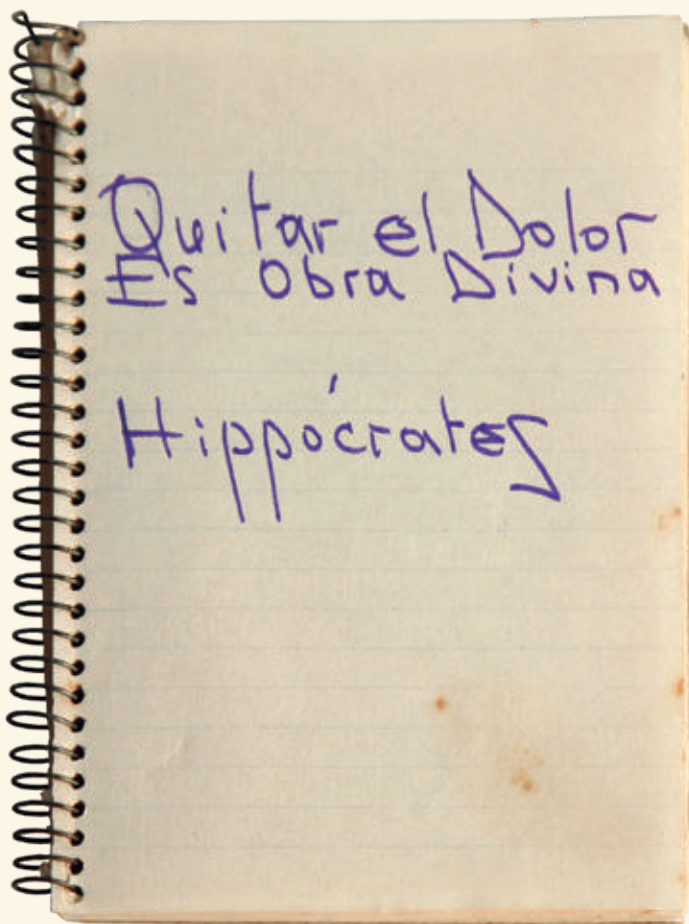 Quitar el Dolor
Es Obra Divina
Hippócrates